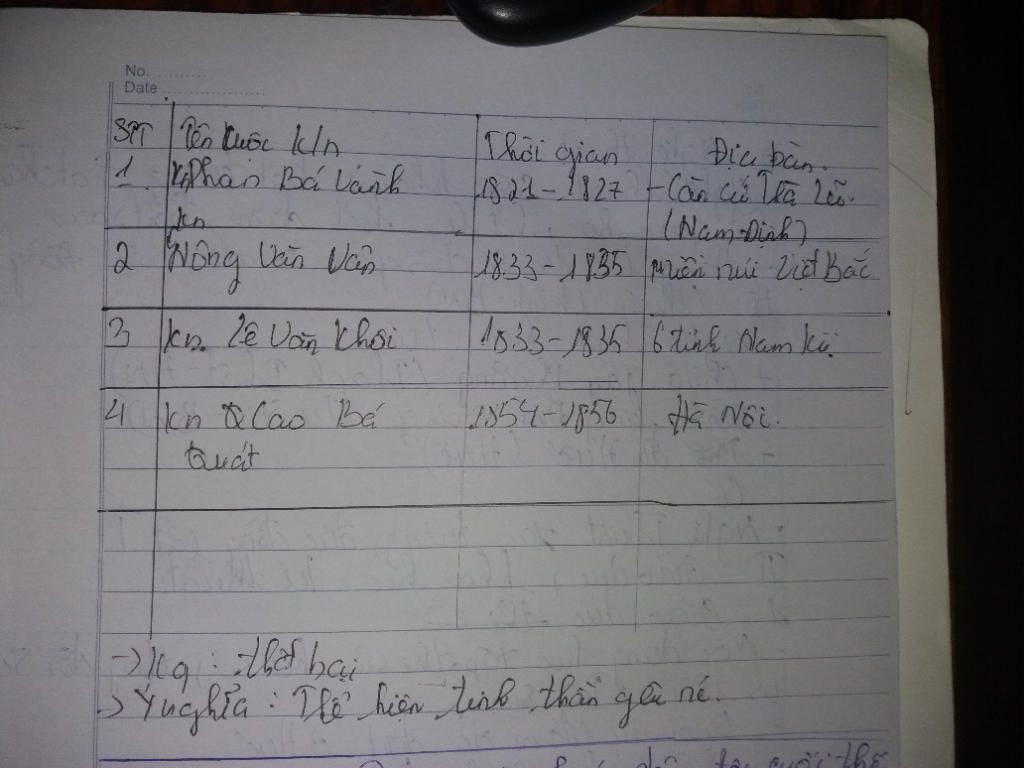 No. ..........
Date ....................
STT Tên cuộc k/n Thời gian Địa bàn.
1. Phan Bá Vành 1821 - 1827 - Căn cứ Trà Lũ.
kn (Nam Định)
2 Nông Văn Vân 1833 - 1835 miền núi Việt Bắc
3 kn. Lê Văn Khôi 1833 - 1835 6 tỉnh Nam Kì.
4 kn Cao Bá 1854 - 1856 Hà Nội.
Quát
→ Kq : thất bại
→ Ý nghĩa : Thể hiện tinh thần yêu nc.
cuối thế